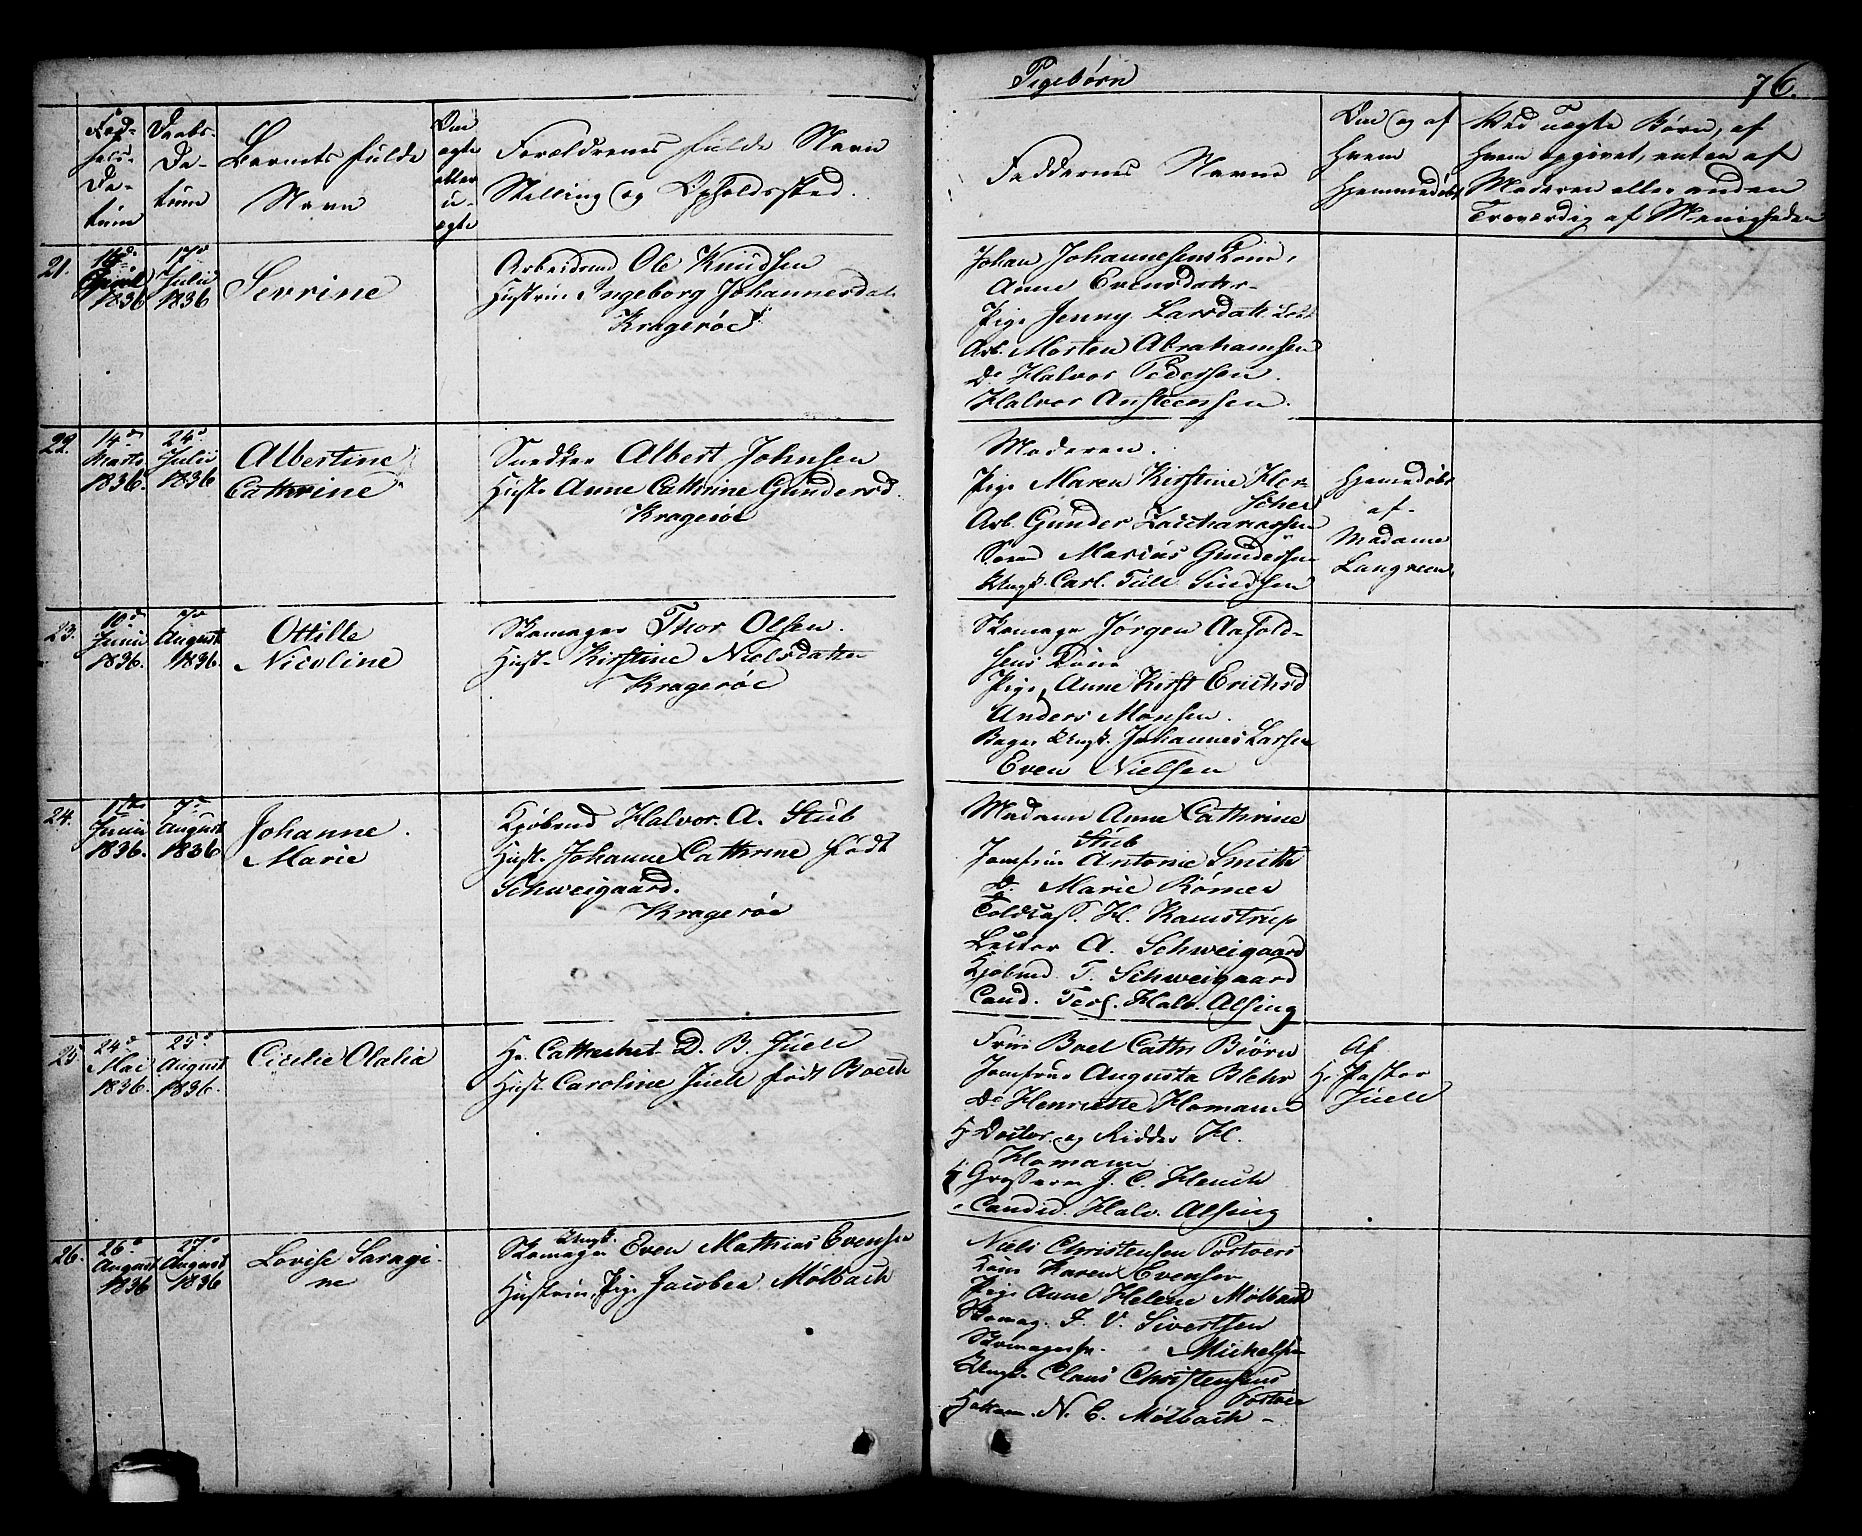 Pigebørn
76.
Fød-
sels-
Da-
tum
Daabs-
Da-
tum
Barnets fulde
Navn
Om
ægte
eller
u-
ægte
Forældrenes fulde Navn
Stilling og Opholdssted.
Faddernes Navne
Om og af
Hvem
Hjemmedøbt
Ved uægte Børn, af
Hvem opgivet, enten af
Moderen eller anden
Troværdig af Menigheden
21.
1836
17de
Julii
1836
Serrine
Arbeidsmd Ole Knudsen
Hustrue Ingeborg Johannesdat.
Kragerøe
Johan Johannesens Kone,
Anne Evensdatr
Pige Jenny Larsdatt.
Arb. Morten Abrahamsen
Do Halvor Pedersen.
Halvor
22.
14de
Marts
1836.
24de
Julii
1836
Albertine
Cathrine
Snedker Albert Johnsen
Hust. Anne Cathrine Gundersd.
Kragerøe
Moderen.
Pige Maren Kirstine
Arb. Gunder Zacchariassen
Marius Gundersen
Ungk. Carl Tull
Hjemmedøbt
af
Madame
Langreen,
23.
10de
Junii
1836.
7de
August
1836.
Ottille
Nicoline
Skomager Thor Olsen.
Hust. Kirstine Nielsdatter
Kragerøe
Skomager Jørgen
sens Kone
Pige Anne Kirst Erichsd
Anders Monsen.
Bager Ungk. Johannes Larsen
Even Nielsen
24.
Junii
1836.
7de
August
1836
Johanne
Marie
Kjøbmd Halvor. A. Stub
Hust. Johanne Cathrine født
Schweigaard.
Kragerøe
Madame Anne Cathrine
Stub
Jomfrue Antonie Smith
Do Marie Rømer
Toldcass. H. Kamstrup
Lector A. Schweigaard
Kjøbmd T. Schweigaard
Cand. Halv. Alsing
25
24de
Mai
1836
25de
August
1836.
Cicelie Olalia
Hr. Cattechet D. B. Juell
Hust. Caroline Juell født Boeck
Frue Boel Cath. Biørn
Jomfrue Augusta Blehr
Do Henriette Homann
Hr Doctor og Ridder H.
Homann
Hr Grosserer J. C. Heuch
Candid. Halv. Alsing
Af
Hr. Pastor
Juell
26.
26de
August
1836
27de
August
1836
Lovise Saragi-
ne
Ungk.
Skomager Even Mathias Evensen
Hustrue, Pige Jacobea Mølbach
Niels Christensen Tostvers
Kone Karen Evenser
Pige Anne Helene Mølbach
Skomag. J. V. Sivertsen
Skomagersv. Mickelsen
Ungk. Claus Christensens
Tostver
N. C. Mølbach